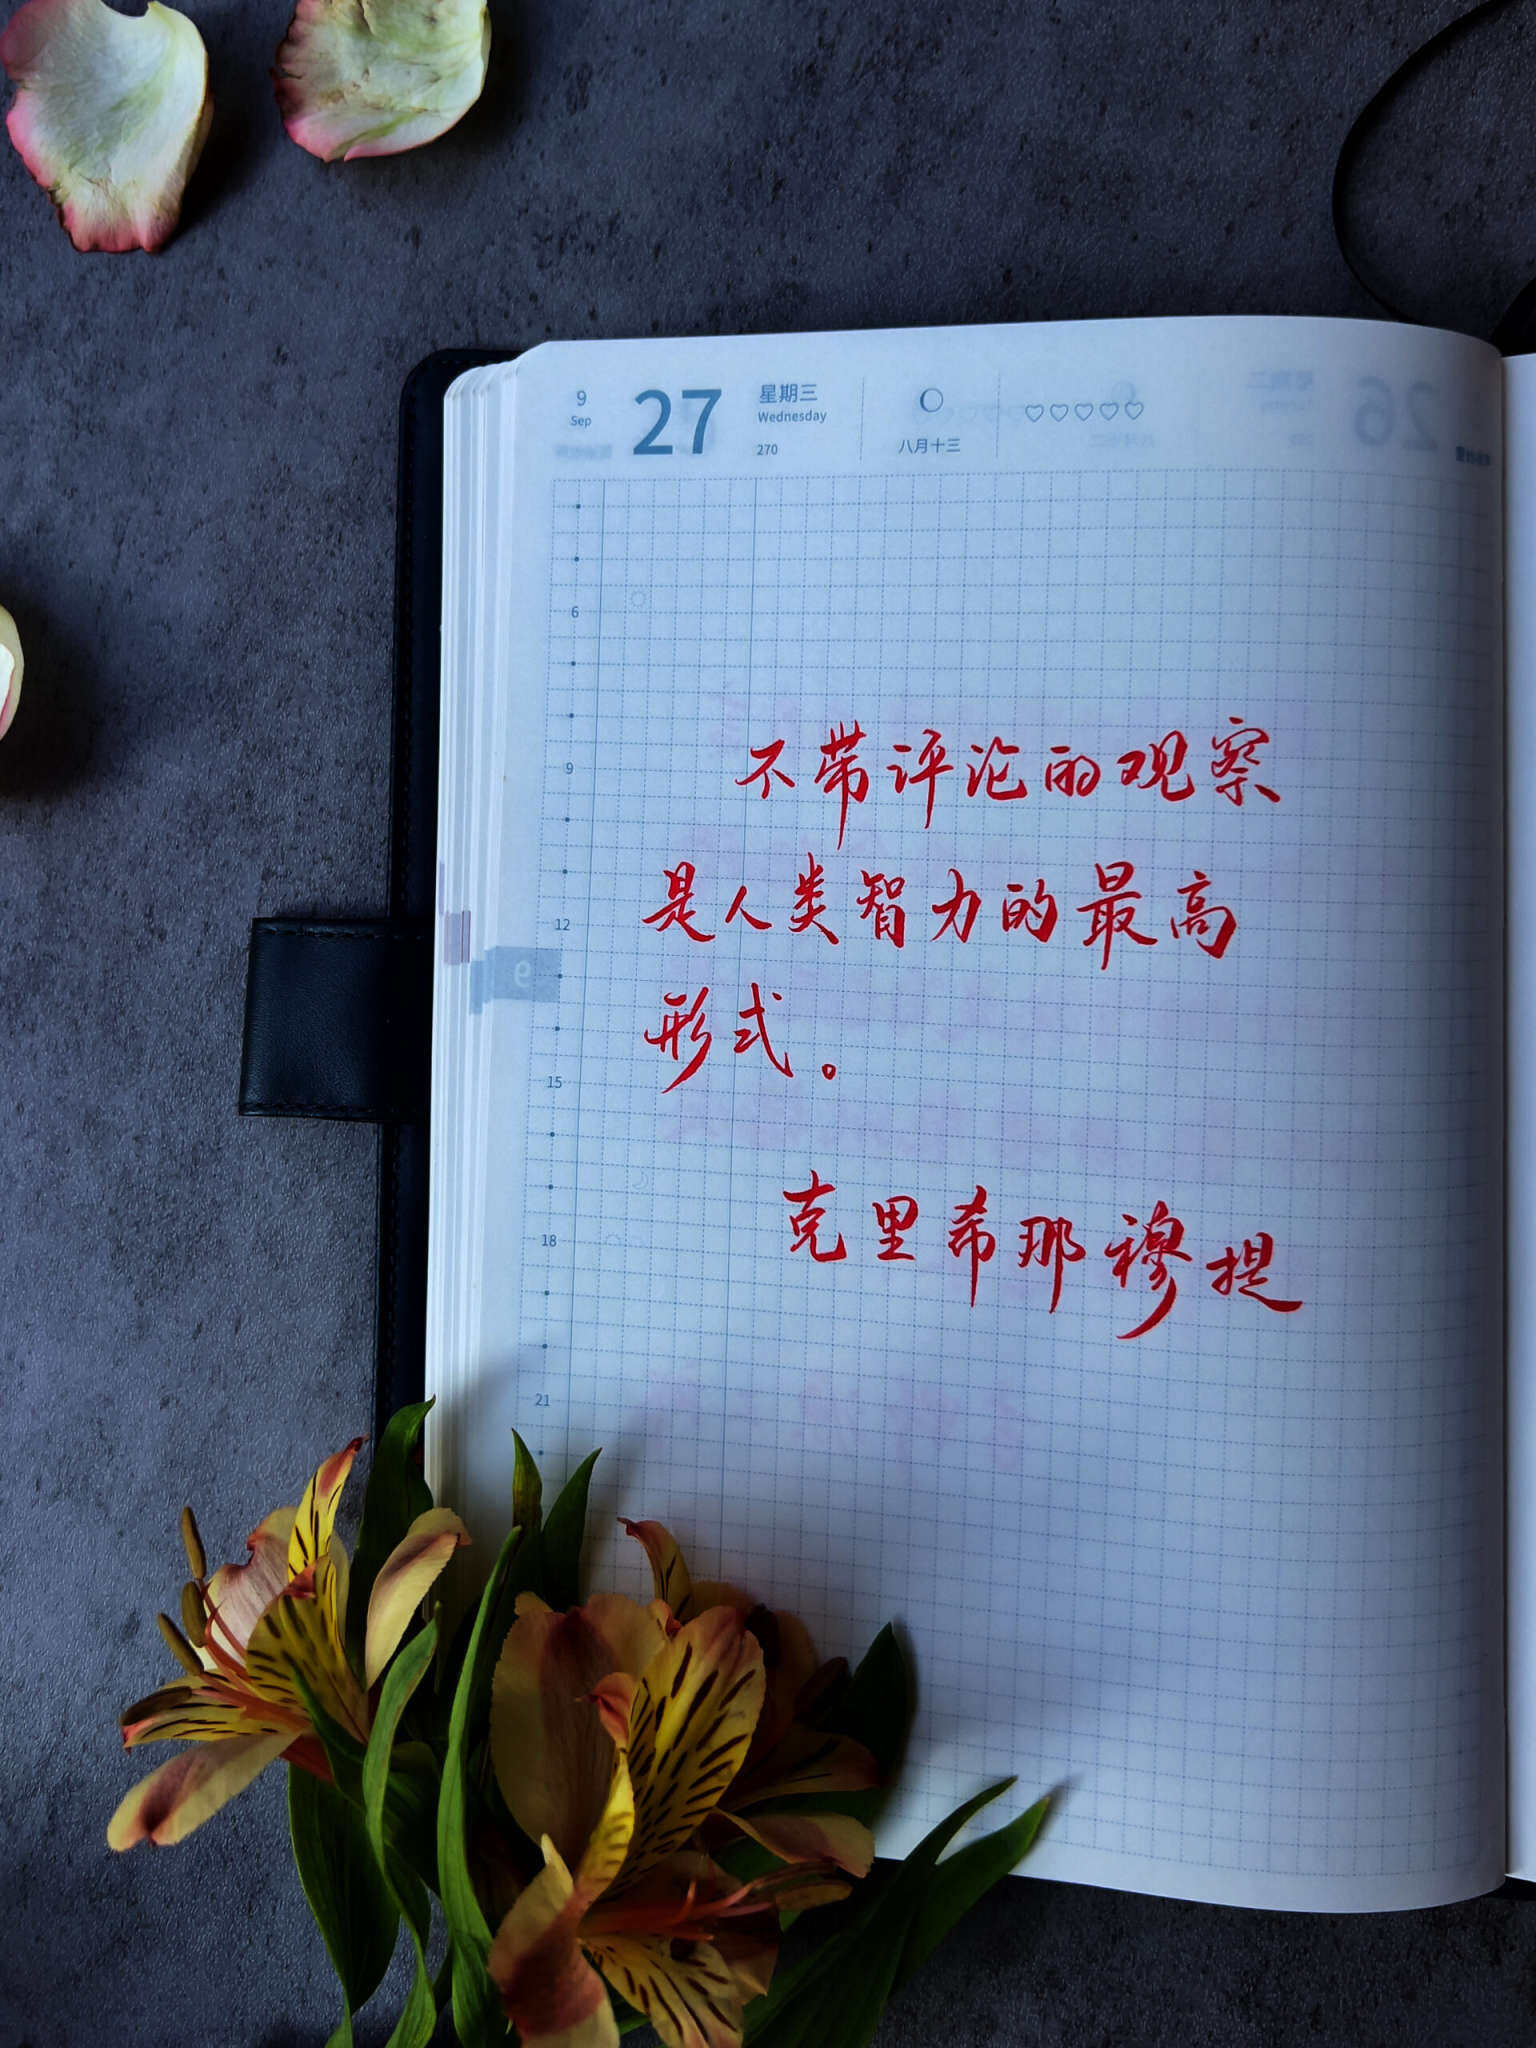 9
Sep
27
星期三
Wednesday
270
八月十三
6
9
12
15
18
21
不带评论的观察
是人类智力的最高
形式。
克里希那穆提